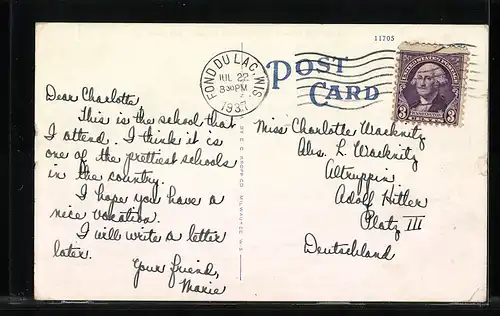 11705
FOND DU LAC, WIS.
JUL 22
8 30 PM
1937
POST CARD
UNITED STATES POSTAGE
3 3
Dear Charlotte
This is the school that
I attend. I think it is
one of the prettiest schools
in the country.
I hope you have a
nice vacation.
I will write a letter
later.
Your friend,
Marie
BY E. C. KROPP CO. MILWAUKEE, WIS.
Miss Charlotte Wacknitz
Abs. L. Wacknitz
Altruppin
Adolf Hitler
Platz III
Deutschland